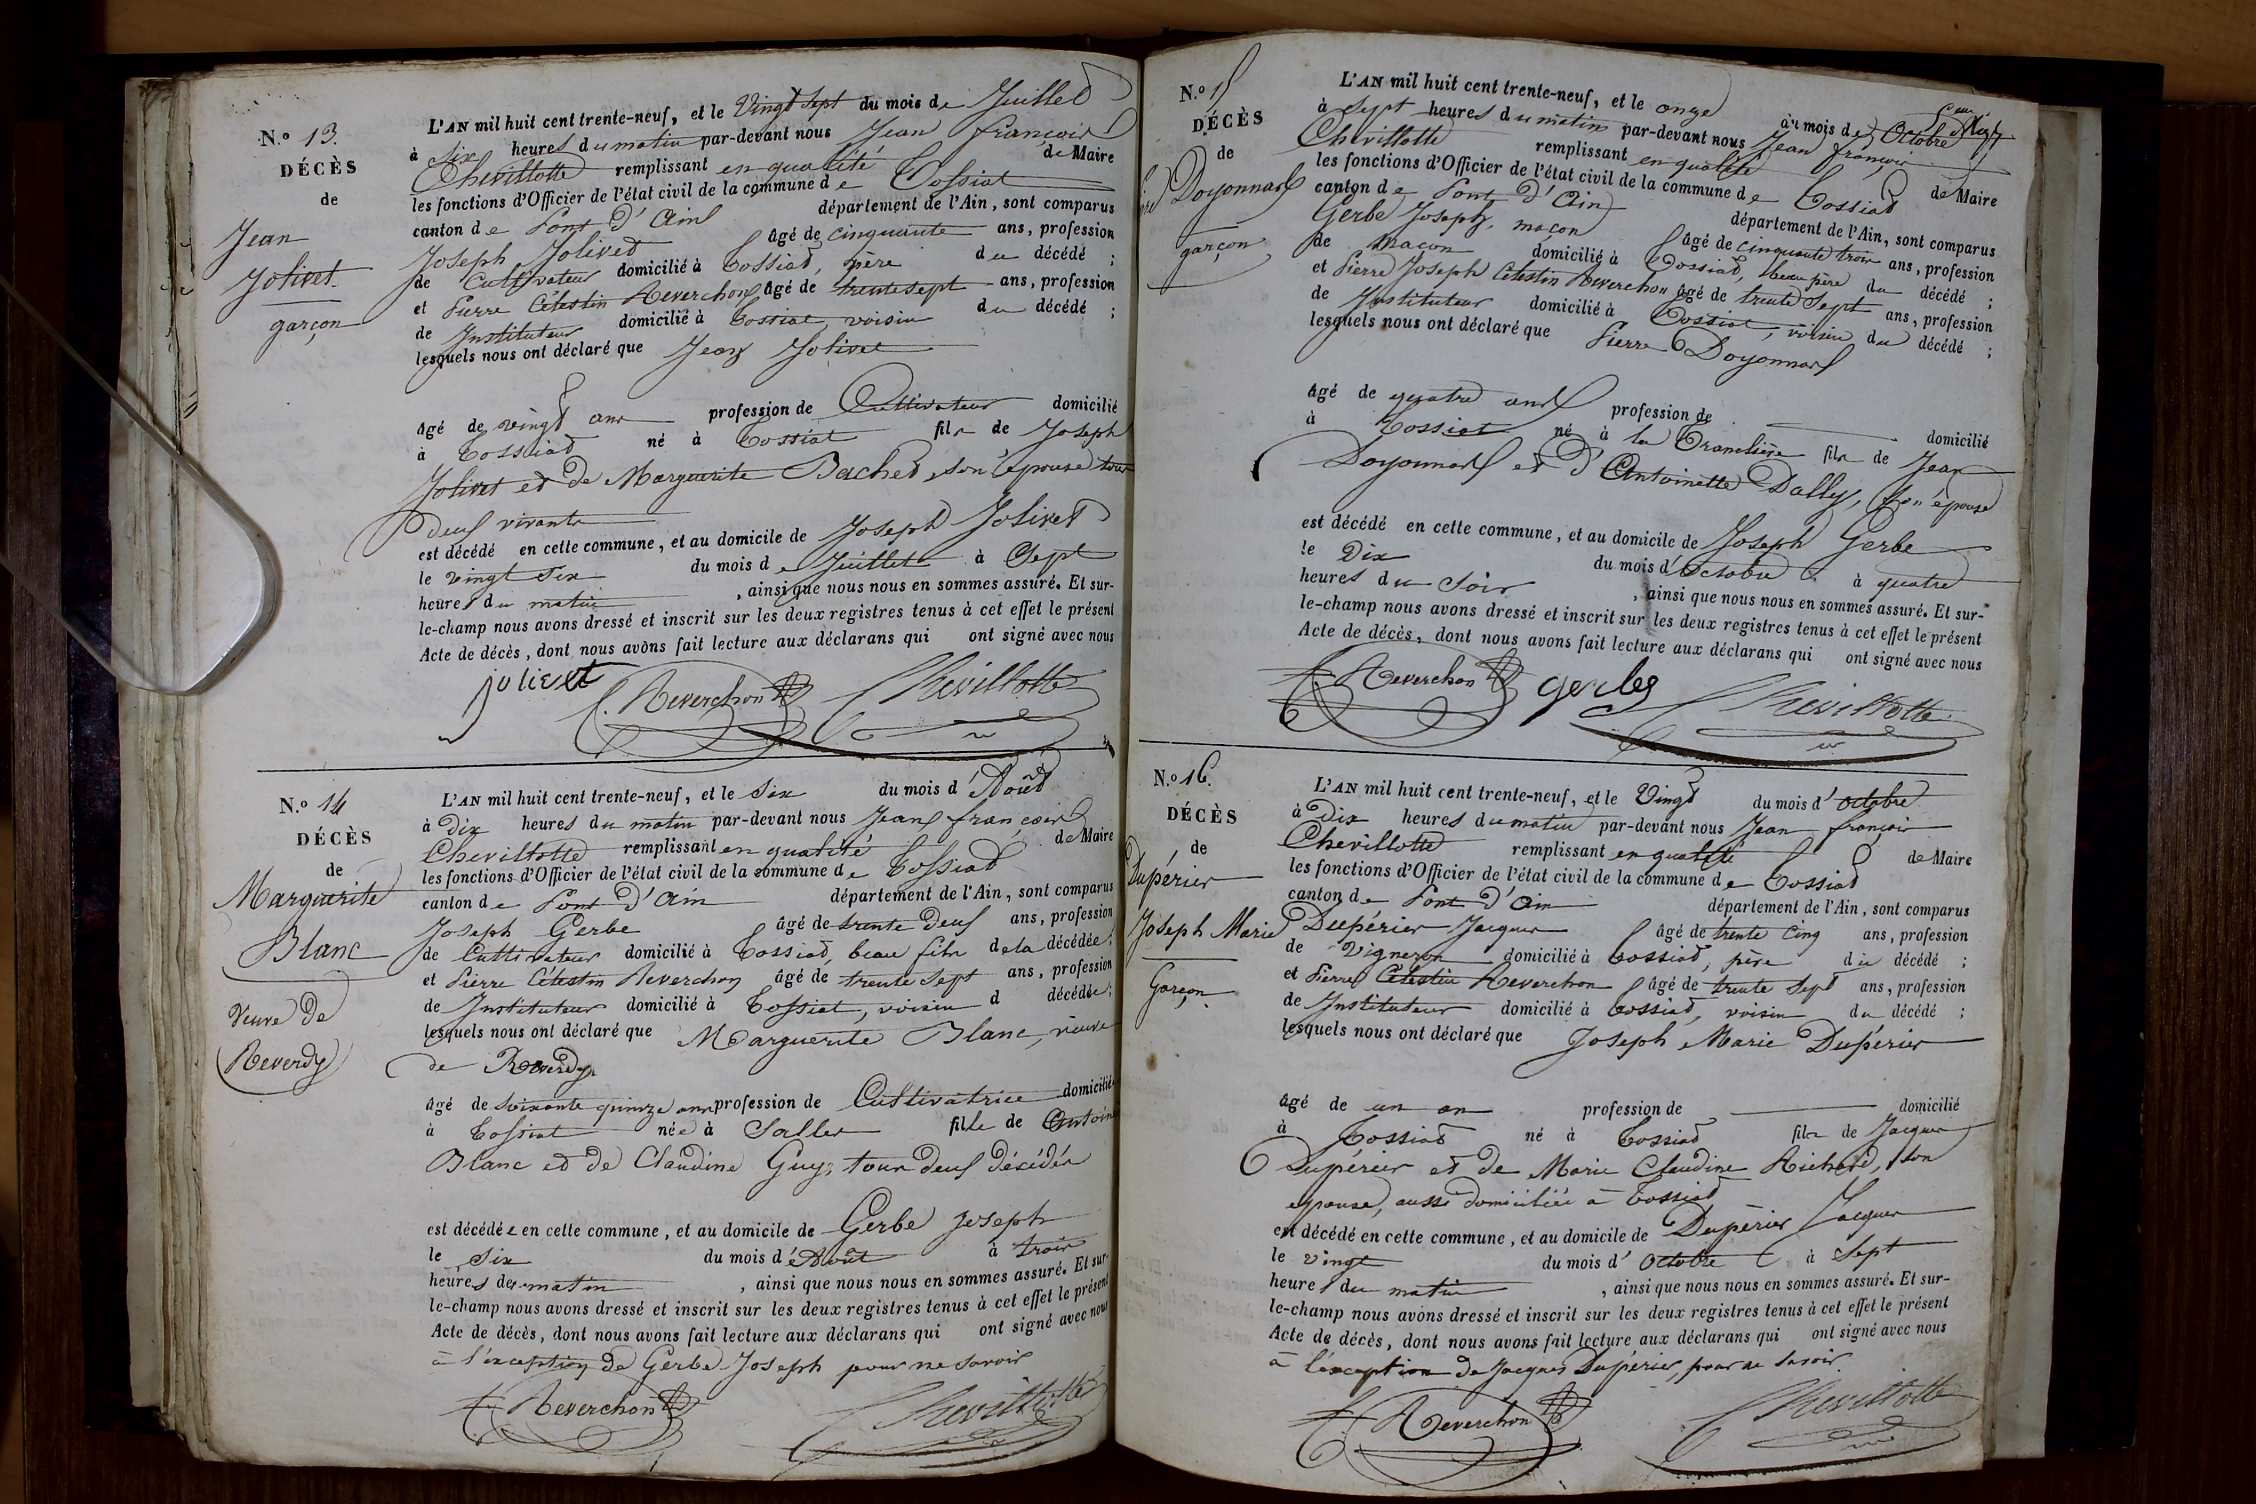 N.º 13.
DÉCÈS
de
Jean
Jolivet
garçon
L'AN mil huit cent trente-neuf, et le vingt sept du mois de Juillet
à six heures du matin par-devant nous Jean françois
Chevillotte remplissant en qualité de Maire
les fonctions d'Officier de l'état civil de la commune de Tossiat
canton de Pont d'Ain département de l'Ain, sont comparus
Joseph Jolivet âgé de cinquante ans, profession
de Cultivateur domicilié à Tossiat, père du décédé ;
et Pierre Célestin Reverchon âgé de trente sept ans, profession
de Instituteur domicilié à Tossiat, voisin du décédé ;
lesquels nous ont déclaré que Jean Jolivet
âgé de vingt ans profession de Cultivateur domicilié
à Tossiat né à Tossiat fils de Joseph
Jolivet et de Marguerite Bachet, son épouse tous
deux vivants
est décédé en cette commune, et au domicile de Joseph Jolivet
le vingt six du mois de Juillet à Sept
heures du matin, ainsi que nous nous en sommes assuré. Et sur-
le-champ nous avons dressé et inscrit sur les deux registres tenus à cet effet le présent
Acte de décès, dont nous avons fait lecture aux déclarans qui ont signé avec nous
joliet Reverchon Chevillotte
N.º 14
DÉCÈS
de
Marguerite
Blanc
Veuve de
Reverdy
L'AN mil huit cent trente-neuf, et le six du mois d'Août
à dix heures du matin par-devant nous Jean françois
Chevillotte remplissant en qualité de Maire
les fonctions d'Officier de l'état civil de la commune de Tossiat
canton de Pont d'Ain département de l'Ain, sont comparus
Joseph Gerbe âgé de trente deux ans, profession
de Cultivateur domicilié à Tossiat, beau fils de la décédée ;
et Pierre Célestin Reverchon âgé de trente sept ans, profession
de Instituteur domicilié à Tossiat, voisin d décédée ;
lesquels nous ont déclaré que Marguerite Blanc, veuve
de Reverdy
âgé de soixante quinze ans profession de Cultivatrice domicilié
à Tossiat née à Salles fille de Antoine
Blanc et de Claudine Guy, tous deux décédés
est décédée en cette commune, et au domicile de Gerbe Joseph
le six du mois d'Août à trois
heures de matin, ainsi que nous nous en sommes assuré. Et sur-
le-champ nous avons dressé et inscrit sur les deux registres tenus à cet effet le présent
Acte de décès, dont nous avons fait lecture aux déclarans qui ont signé avec nous
à l'exception de Gerbe Joseph pour ne savoir
Reverchon Chevillotte
N.º 15
DÉCÈS
de
Doyonnard
garçon
L'AN mil huit cent trente-neuf, et le onze du mois de Octobre
à sept heures du matin par-devant nous Jean françois
Chevillotte remplissant en qualité de Maire
les fonctions d'Officier de l'état civil de la commune de Tossiat
canton de Pont d'Ain département de l'Ain, sont comparus
Gerbe Joseph, maçon âgé de cinquante trois ans, profession
de maçon domicilié à Tossiat, beau père du décédé ;
et Pierre Joseph Célestin Reverchon âgé de trente sept ans, profession
de Instituteur domicilié à Tossiat, voisin du décédé ;
lesquels nous ont déclaré que Pierre Doyonnard
âgé de quatre ans profession de domicilié
à Tossiat né à la Tranclière fils de Jean
Doyonnard et d'Antoinette Dally, son épouse
est décédé en cette commune, et au domicile de Joseph Gerbe
le dix du mois d'Octobre à quatre
heures du soir, ainsi que nous nous en sommes assuré. Et sur-
le-champ nous avons dressé et inscrit sur les deux registres tenus à cet effet le présent
Acte de décès, dont nous avons fait lecture aux déclarans qui ont signé avec nous
Reverchon gerbe Chevillotte
N.º 16.
DÉCÈS
de
Dupérier
Joseph Marie
Garçon
L'AN mil huit cent trente-neuf, et le Vingt du mois d'octobre
à dix heures du matin par-devant nous Jean françois
Chevillotte remplissant en qualité de Maire
les fonctions d'Officier de l'état civil de la commune de Tossiat
canton de Pont d'Ain département de l'Ain, sont comparus
Dupérier Jacques âgé de trente cinq ans, profession
de Vigneron domicilié à Tossiat, père du décédé ;
et Pierre Célestin Reverchon âgé de trente sept ans, profession
de Instituteur domicilié à Tossiat, voisin du décédé ;
lesquels nous ont déclaré que Joseph Marie Dupérier
âgé de un an profession de domicilié
à Tossiat né à Tossiat fils de Jacques
Dupérier et de Marie Claudine Richard, son
épouse, aussi domiciliée à Tossiat
est décédé en cette commune, et au domicile de Dupérier Jacques
le vingt du mois d'octobre à sept
heures du matin, ainsi que nous nous en sommes assuré. Et sur-
le-champ nous avons dressé et inscrit sur les deux registres tenus à cet effet le présent
Acte de décès, dont nous avons fait lecture aux déclarans qui ont signé avec nous
à l'exception de Jacques Dupérier, pour ne savoir
Reverchon Chevillotte